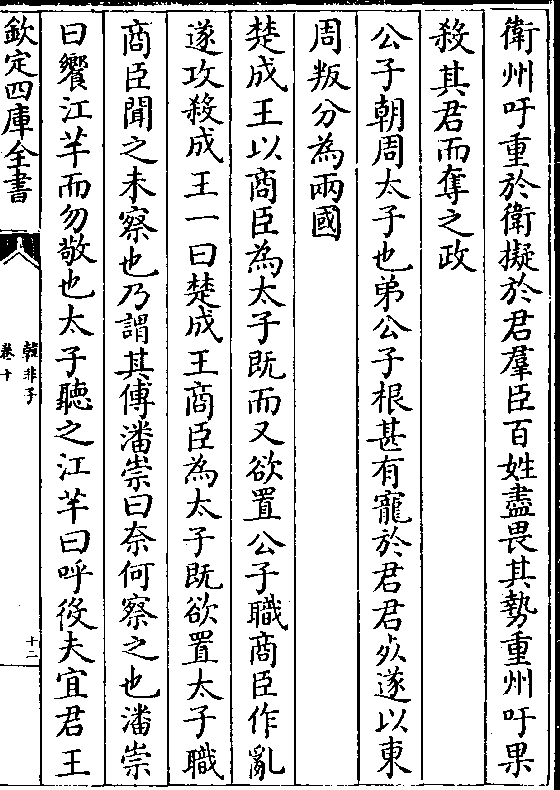 衛州吁重於衛擬於君羣臣百姓盡畏其勢重州吁果
殺其君而奪之政
公子朝周太子也弟公子根甚有寵於君君死遂以東
周叛分為兩國
楚成王以商臣為太子既而又欲置公子職商臣作亂
遂攻殺成王一曰楚成王商臣為太子既欲置太子職
商臣聞之未察也乃謂其傅潘崇曰奈何察之也潘崇
曰饗江芊而勿敬也太子聽之江芊曰呼役夫宜君王
欽定四庫全書
韓非子
卷十
十二